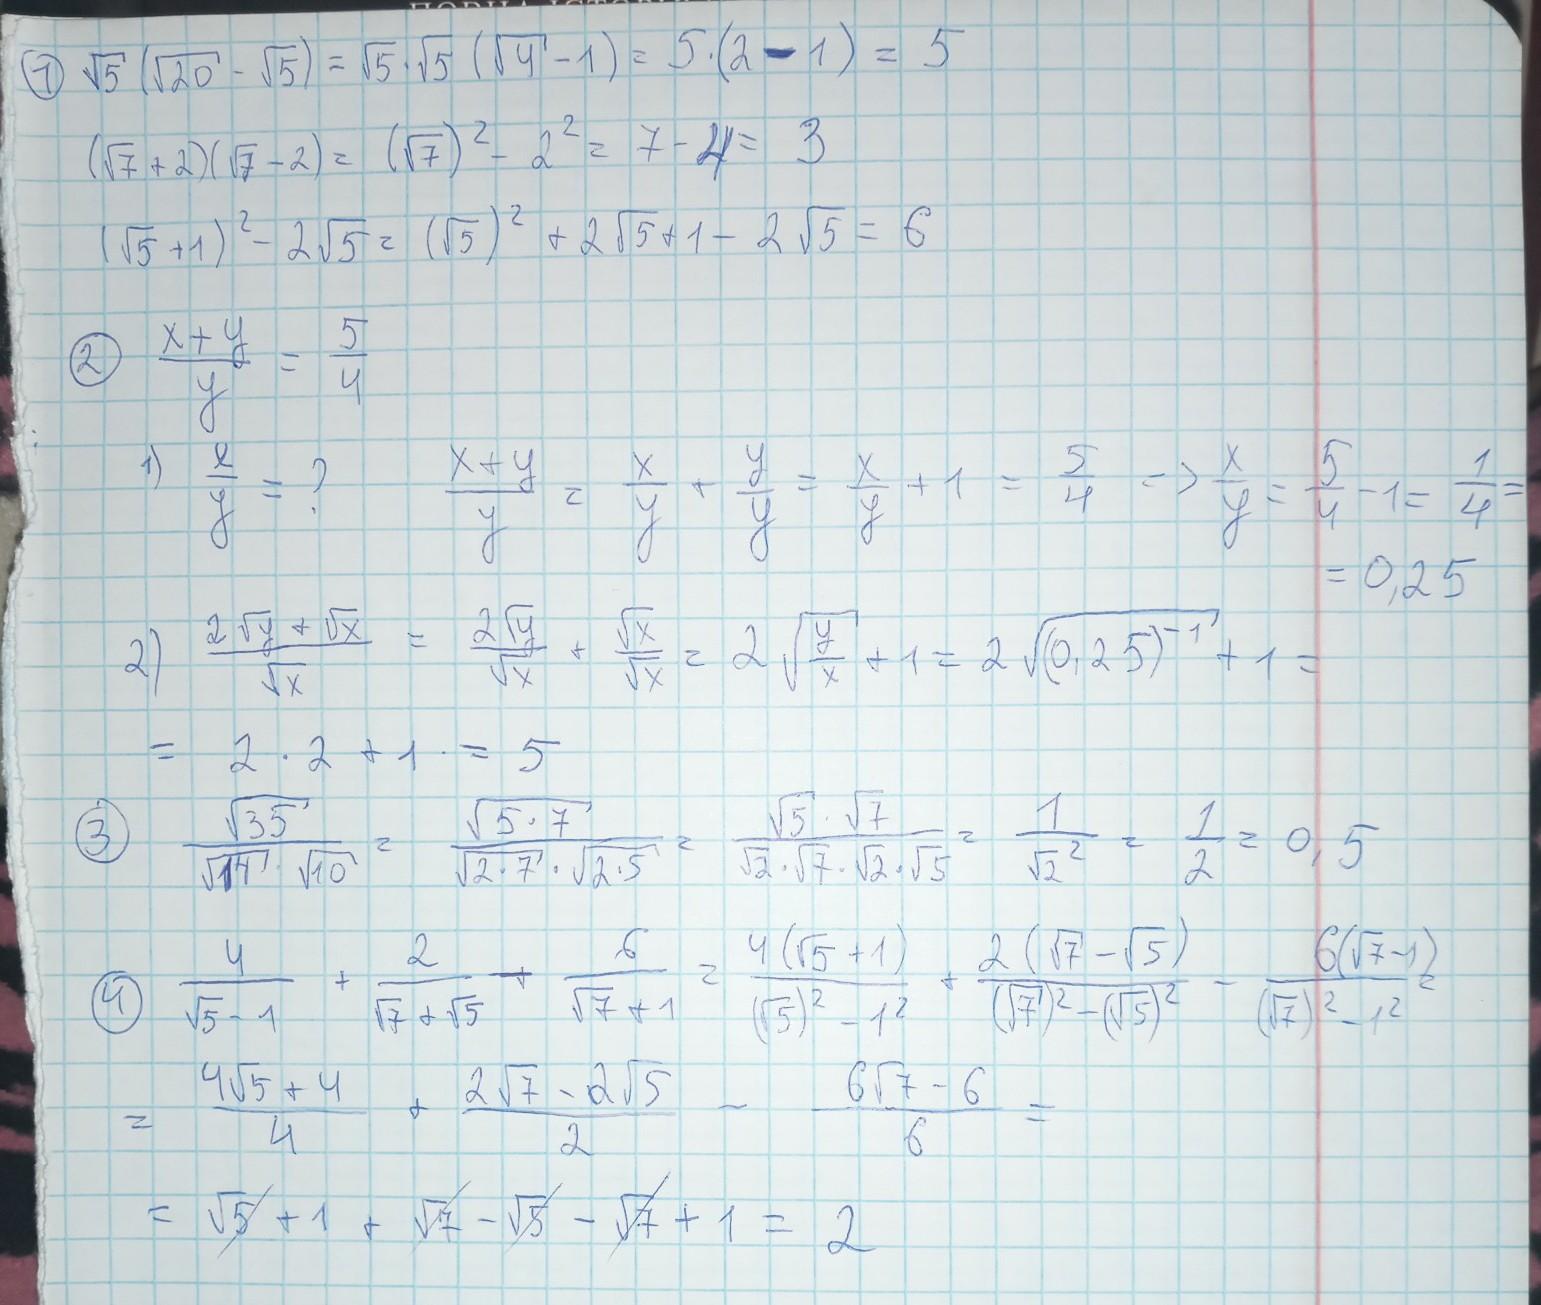 ① √5 (√20 - √5) = √5·√5 (√4 - 1) = 5·(2 - 1) = 5
(√7 + 2)(√7 - 2) = (√7)² - 2² = 7 - 4 = 3
(√5 + 1)² - 2√5 = (√5)² + 2√5 + 1 - 2√5 = 6
② (x+y)/y = 5/4
1) x/y = ? (x+y)/y = x/y + y/y = x/y + 1 = 5/4 => x/y = 5/4 - 1 = 1/4 =
= 0,25
2) (2√y + √x)/√x = 2√y/√x + √x/√x = 2√(y/x) + 1 = 2√((0,25)⁻¹) + 1 =
= 2 · 2 + 1 = 5
③ √35/(√14 · √10) = √(5·7)/(√(2·7) · √(2·5)) = (√5 · √7)/(√2·√7·√2·√5) = 1/√2² = 1/2 = 0,5
④ 4/(√5 - 1) + 2/(√7 + √5) - 6/(√7 + 1) = 4(√5 + 1)/((√5)² - 1²) + 2(√7 - √5)/((√7)² - (√5)²) - 6(√7 - 1)/((√7)² - 1²) =
= (4√5 + 4)/4 + (2√7 - 2√5)/2 - (6√7 - 6)/6 =
= √5 + 1 + √7 - √5 - √7 + 1 = 2